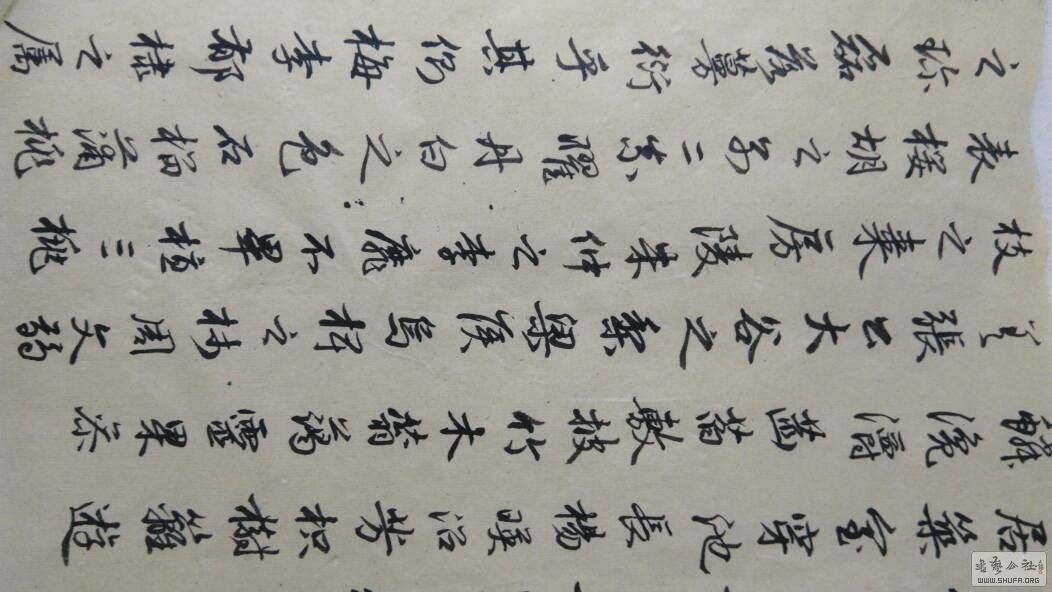 居築室穿池長楊映沼芳枳樹籬遊
鱗瀺灂菡萏敷披竹木蓊藹靈果參
差張公大谷之梨梁侯烏椑之柿周文弱
枝之棗房陵朱仲之李靡不畢植三桃
表櫻胡之別二柰耀丹白之色石榴蒲桃
之珍磊落蔓衍乎其側梅李郁棣之屬
WWW.SHUFA.ORG